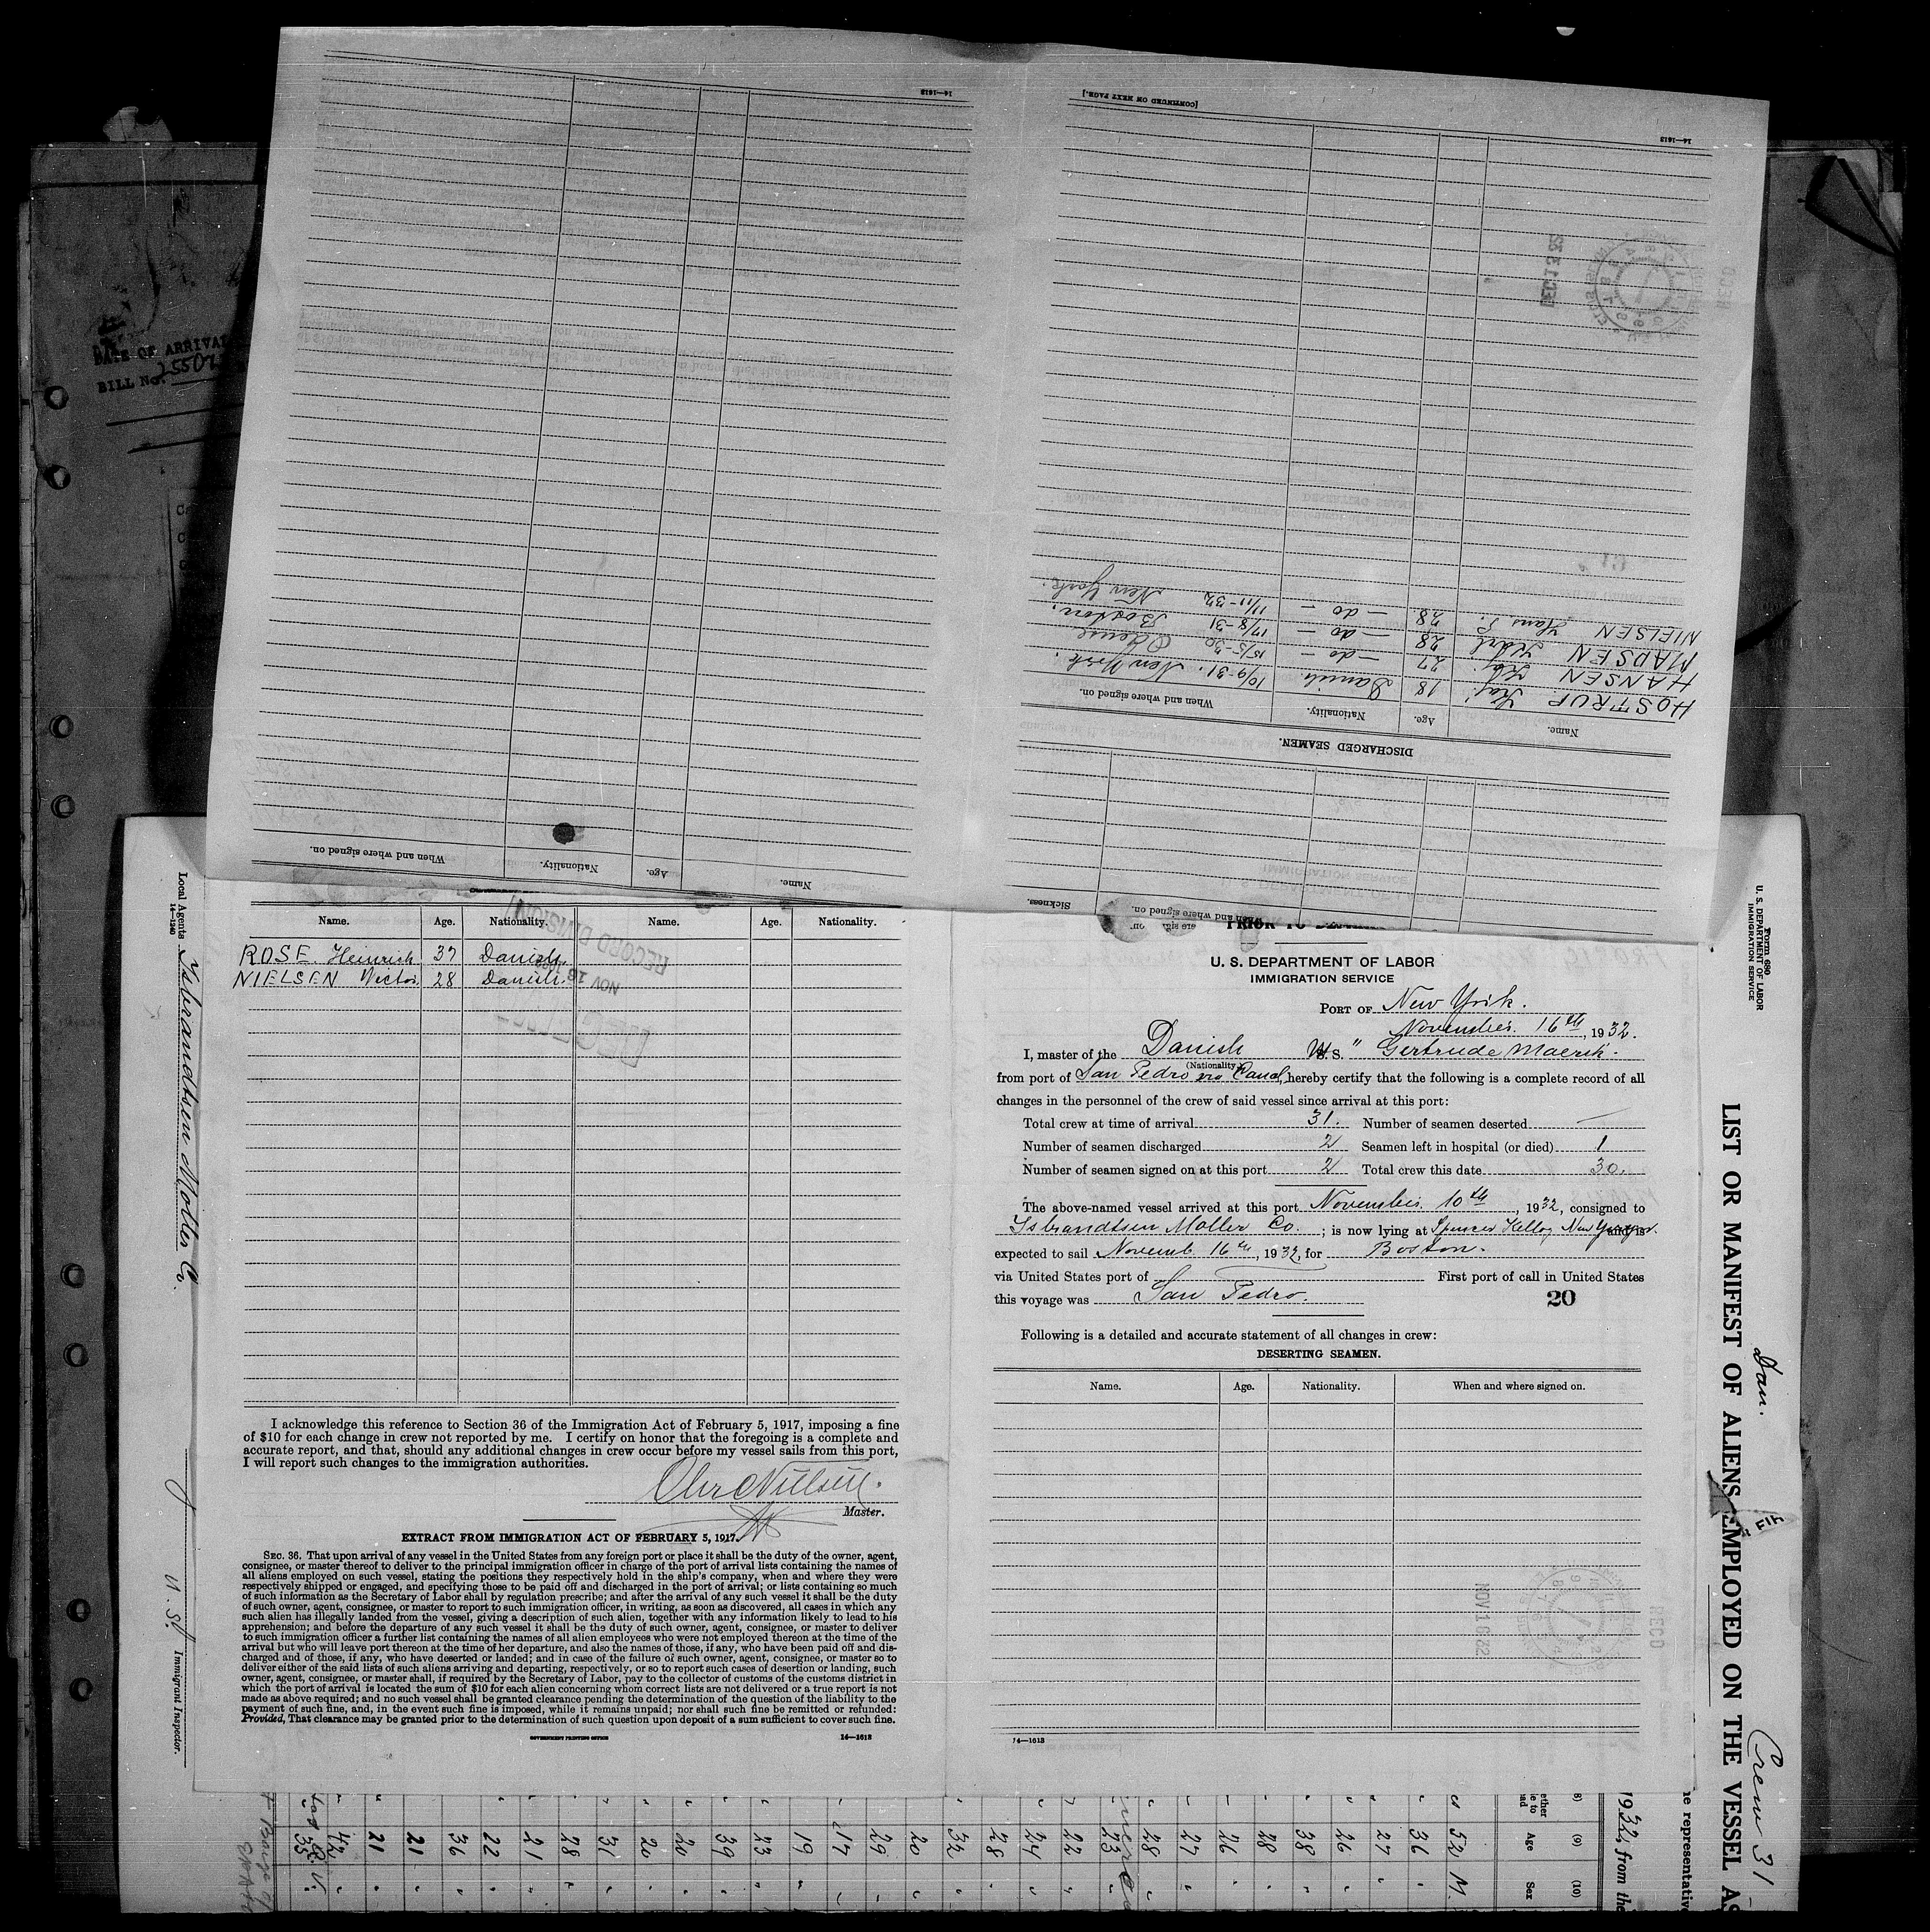 [CONTINUED ON NEXT PAGE.]
14—1613
14—1613
DEC 13 32
REC'D
NIELSEN Hans P. 28 — do — 11/11-32 New York.
MADSEN Ejdel 28 — do — 17/8-31 Boston.
HANSEN 27 — do — 15/5-30 Odense
HOSTRUP Kaj 18 Danish. 10/9-31. New York.
Name. Age. Nationality. When and where signed on.
DISCHARGED SEAMEN.
Name. Age. Nationality. When and where signed on.
When and where signed on. Sickness.
DATE OF ARRIVAL
BILL No. 25507
Local Agents Isbrandtsen Moller Co.
14—1240
U.S. Immigrant Inspector.
Name. Age. Nationality. Name. Age. Nationality.
RECORD DIVISION
NOV 18 1932
ROSE Heinrich 37 Danish.
NIELSEN Victor 28 Danish.
I acknowledge this reference to Section 36 of the Immigration Act of February 5, 1917, imposing a fine
of $10 for each change in crew not reported by me. I certify on honor that the foregoing is a complete and
accurate report, and that, should any additional changes in crew occur before my vessel sails from this port,
I will report such changes to the immigration authorities.
Master.
EXTRACT FROM IMMIGRATION ACT OF FEBRUARY 5, 1917.
SEC. 36. That upon arrival of any vessel in the United States from any foreign port or place it shall be the duty of the owner, agent,
consignee, or master thereof to deliver to the principal immigration officer in charge of the port of arrival lists containing the names of
all aliens employed on such vessel, stating the positions they respectively hold in the ship's company, when and where they were
respectively shipped or engaged, and specifying those to be paid off and discharged in the port of arrival; or lists containing so much
of such information as the Secretary of Labor shall by regulation prescribe; and after the arrival of any such vessel it shall be the duty
of such owner, agent, consignee, or master to report to such immigration officer, in writing, as soon as discovered, all cases in which any
such alien has illegally landed from the vessel, giving a description of such alien, together with any information likely to lead to his
apprehension; and before the departure of any such vessel it shall be the duty of such owner, agent, consignee, or master to deliver
to such immigration officer a further list containing the names of all alien employees who were not employed thereon at the time of the
arrival but who will leave port thereon at the time of her departure, and also the names of those, if any, who have been paid off and dis-
charged and of those, if any, who have deserted or landed; and in case of the failure of such owner, agent, consignee, or master so to
deliver either of the said lists of such aliens arriving and departing, respectively, or so to report such cases of desertion or landing, such
owner, agent, consignee, or master shall, if required by the Secretary of Labor, pay to the collector of customs of the customs district in
which the port of arrival is located the sum of $10 for each alien concerning whom correct lists are not delivered or a true report is not
made as above required; and no such vessel shall be granted clearance pending the determination of the question of the liability to the
payment of such fine, and, in the event such fine is imposed, while it remains unpaid; nor shall such fine be remitted or refunded:
Provided, That clearance may be granted prior to the determination of such question upon deposit of a sum sufficient to cover such fine.
GOVERNMENT PRINTING OFFICE 14—1613
PRIOR TO
U. S. DEPARTMENT OF LABOR
IMMIGRATION SERVICE
PORT OF New York.
November 16th, 1932.
I, master of the Danish M.S. "Gertrude Maersk.
(Nationality)
from port of San Pedro via Canal, hereby certify that the following is a complete record of all
changes in the personnel of the crew of said vessel since arrival at this port:
Total crew at time of arrival 31. Number of seamen deserted —
Number of seamen discharged 2 Seamen left in hospital (or died) 1
Number of seamen signed on at this port 2 Total crew this date 30.
The above-named vessel arrived at this port November 10th, 1932, consigned to
Isbrandtsen Moller Co. ; is now lying at Spencer Kellog New and is
expected to sail Novemb. 16th, 1932, for Boston.
via United States port of — First port of call in United States
this voyage was San Pedro.
20
Following is a detailed and accurate statement of all changes in crew:
DESERTING SEAMEN.
Name. Age. Nationality. When and where signed on.
NOV 16 32
REC'D
14—1613
Form 680
U. S. DEPARTMENT OF LABOR
IMMIGRATION SERVICE
LIST OR MANIFEST OF ALIENS EMPLOYED ON THE VESSEL AS
Dan.
Crew 31
1932, from the
(9) Age
(10) Sex
52 36 27 26 38 28 26 27 28 23 22 24 28 32 20 29 17 19 23 39 20 20 31 28 21 22 36 21 21 42 35
M.